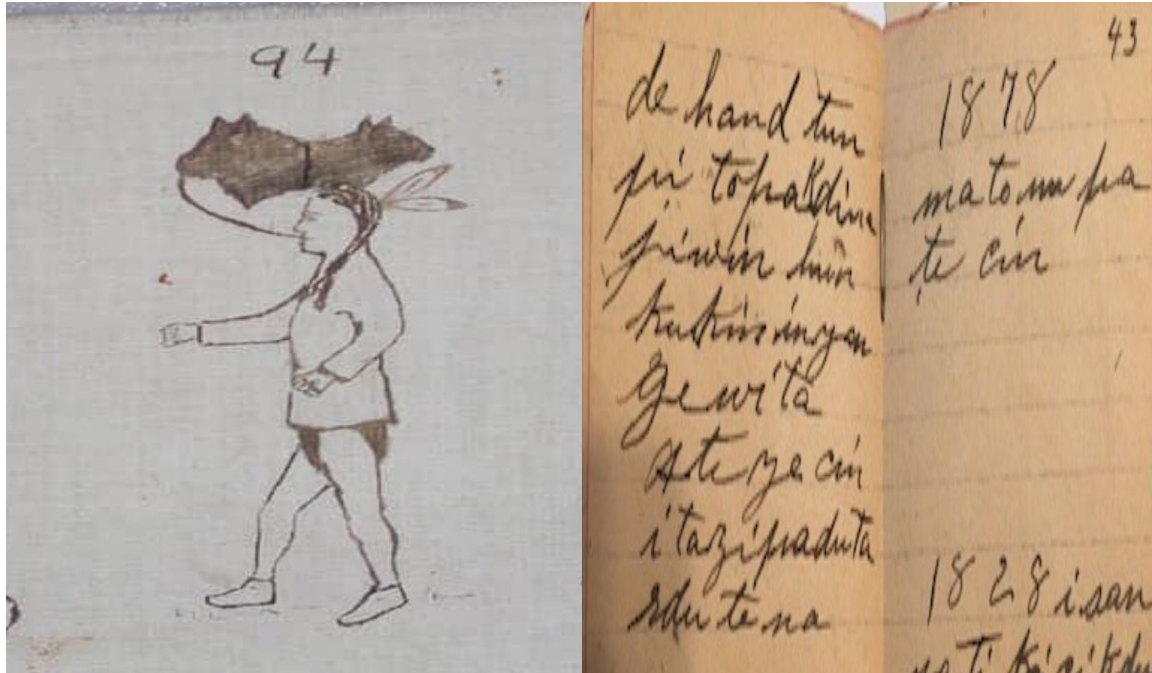 94
de hand tun
pi topakdina
piwin hin
kukinsinyan
Ge wita
Ate ye cin
itazipaduta
sdutena
43
1878
mato nu pa
te cin
1828 i san